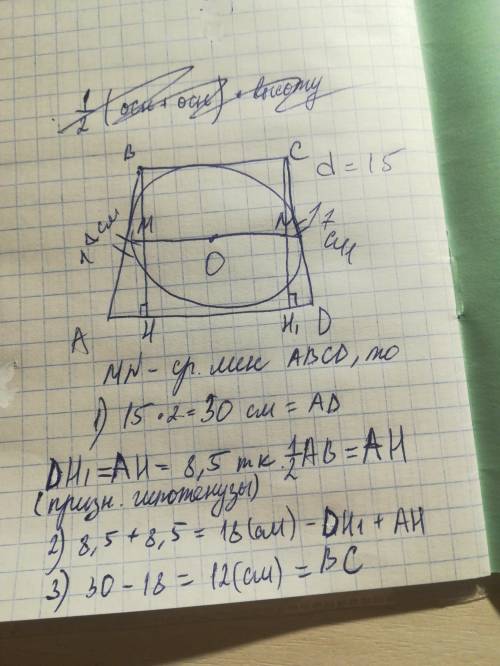 1/2 (осн + осн) · высоту
B C d = 15
17 см M N 17 см
O
A H H₁ D
MN - ср. лин ABCD, то
1) 15 · 2 = 30 см = AD
DH₁ = AH = 8,5 т.к. 1/2 AB = AH
(призн. гипотенузы)
2) 8,5 + 8,5 = 18 (см) - DH₁ + AH
3) 30 - 18 = 12 (см) = BC